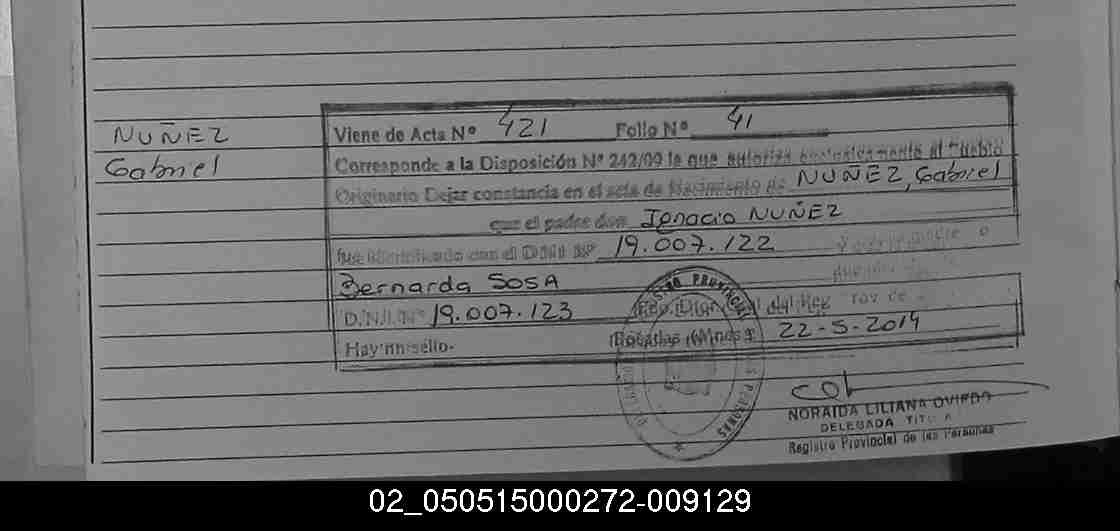 NUÑEZ
Gabriel
Viene de Acta Nº 421 Folio Nº 41
Corresponde a la Disposición Nº 242/09 la que autoriza exclusivamente al Pueblo
Originario Dejar constancia en el acta de Nacimiento de NUÑEZ, Gabriel
que el padre don Ignacio NUÑEZ
fue identificado con el DNI Nº 19.007.122 y
Bernarda SOSA
D.N.I. Nº 19.007.123 del Reg
Hay un sello. 22-5-2014
NORAIDA LILIANA OVIEDO
DELEGADA
Registro Provincial de las Personas
02_050515000272-009129